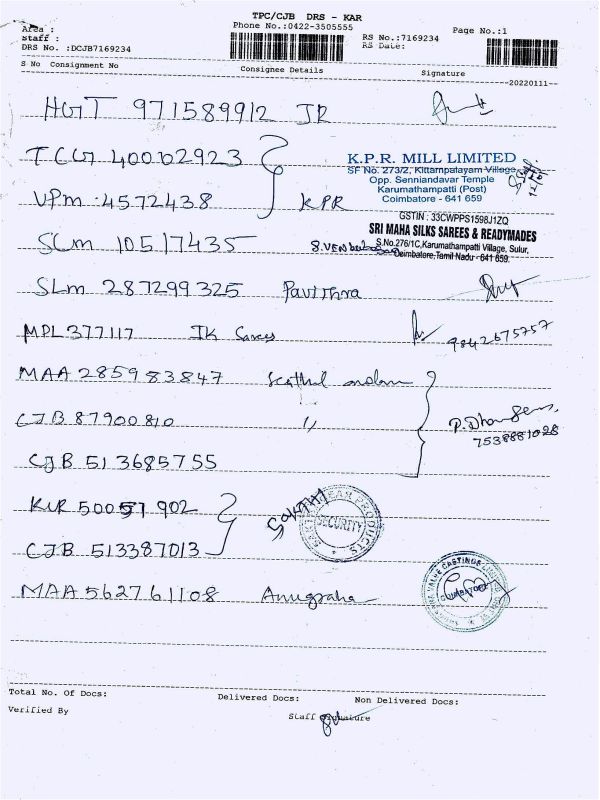 TPC/CJB DRS - KAR
Phone No.:0422-3505555
Area :
Staff :
DRS No. :DCJB7169234
RS No.:7169234
RS Date:
Page No.:1
S No Consignment No
Consignee Details
Signature
--20220111--
HGT 971589912 JR
TCG 40002923
K.P.R. MILL LIMITED
SF No. 273/2, Kittampalayam Village,
Opp. Senniandavar Temple
Karumathampatti (Post)
Coimbatore - 641 659
VPM 4572438 KPR
GSTIN : 33CWPPS1598J1ZQ
SRI MAHA SILKS SAREES & READYMADES
S.No.276/1C,Karumathampatti Village, Sulur,
Coimbatore,Tamil Nadu - 641 659.
SCM 10517435
SLM 287299325 Pavithra
MPL 377117 JK Sarees
9842675757
MAA 285983847
CJB 87900810 "
7538881028
CJB 513685755
KUR 5005 902
SAKTHI
SECURITY
CJB 513387013
MAA 562761108 Anugraha
Total No. Of Docs:
Delivered Docs:
Non Delivered Docs:
Verified By
Staff Signature